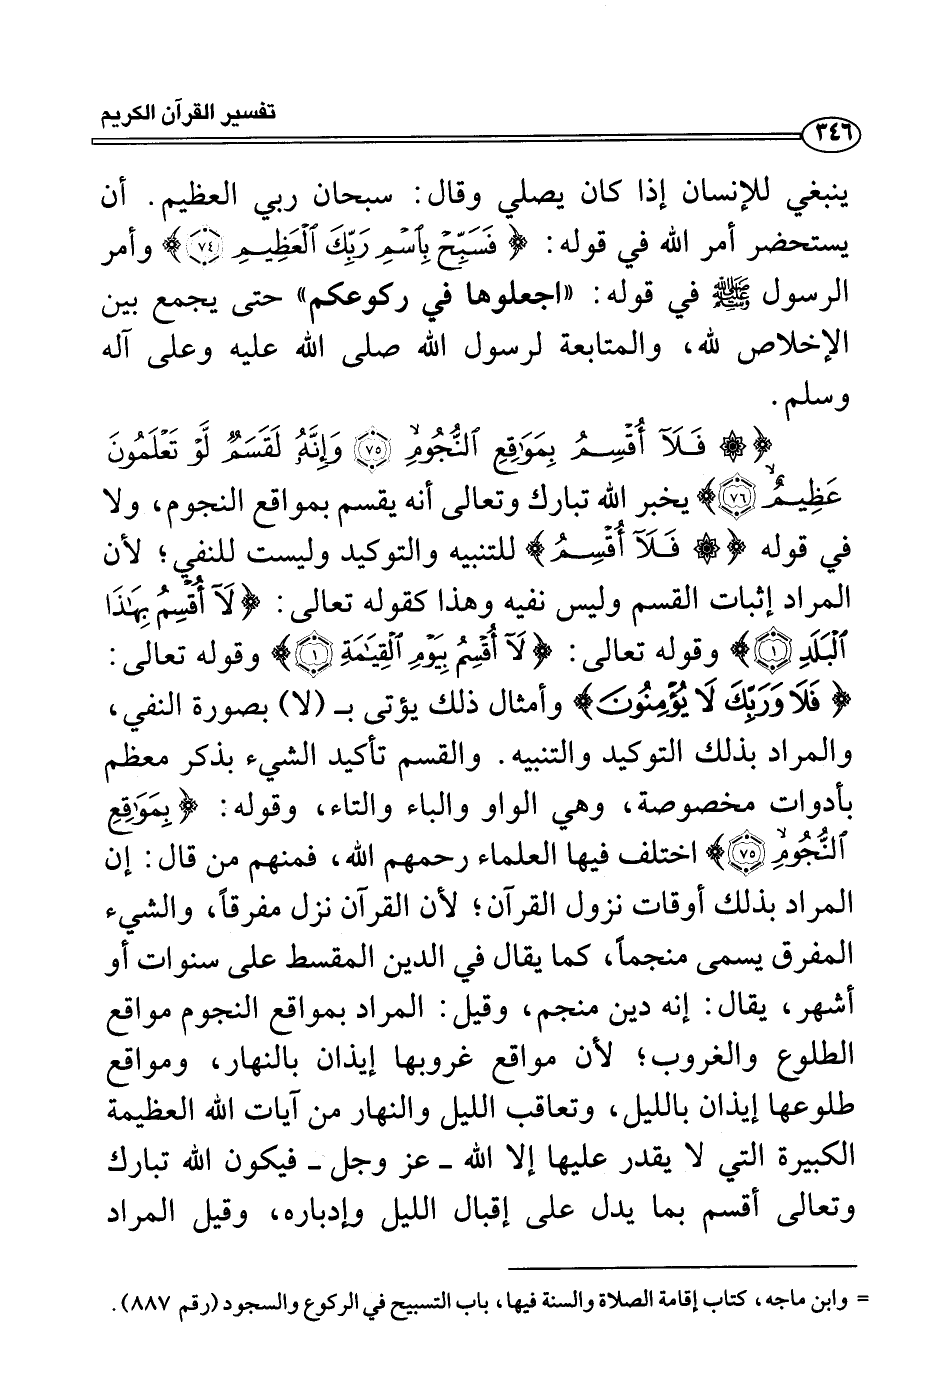 تفسير القرآن الكريم
٣٤٦
ينبغي للإنسان إذا كان يصلي وقال: سبحان ربي العظيم. أن
يستحضر أمر الله في قوله: ﴿فَسَبِّحْ بِٱسْمِ رَبِّكَ ٱلْعَظِيمِ ٧٤﴾ وأمر
الرسول ﷺ في قوله: «اجعلوها في ركوعكم» حتى يجمع بين
الإخلاص لله، والمتابعة لرسول الله صلى الله عليه وعلى آله
وسلم.
﴿۞ فَلَآ أُقْسِمُ بِمَوَٰقِعِ ٱلنُّجُومِ ٧٥ وَإِنَّهُۥ لَقَسَمٌ لَّوْ تَعْلَمُونَ
عَظِيمٌ ٧٦﴾ يخبر الله تبارك وتعالى أنه يقسم بمواقع النجوم، ولا
في قوله ﴿۞ فَلَآ أُقْسِمُ﴾ للتنبيه والتوكيد وليست للنفي؛ لأن
المراد إثبات القسم وليس نفيه وهذا كقوله تعالى: ﴿لَآ أُقْسِمُ بِهَٰذَا
ٱلْبَلَدِ ١﴾ وقوله تعالى: ﴿لَآ أُقْسِمُ بِيَوْمِ ٱلْقِيَٰمَةِ ١﴾ وقوله تعالى:
﴿فَلَا وَرَبِّكَ لَا يُؤْمِنُونَ﴾ وأمثال ذلك يؤتى بـ (لا) بصورة النفي،
والمراد بذلك التوكيد والتنبيه. والقسم تأكيد الشيء بذكر معظم
بأدوات مخصوصة، وهي الواو والباء والتاء، وقوله: ﴿بِمَوَٰقِعِ
ٱلنُّجُومِ ٧٥﴾ اختلف فيها العلماء رحمهم الله، فمنهم من قال: إن
المراد بذلك أوقات نزول القرآن؛ لأن القرآن نزل مفرقاً، والشيء
المفرق يسمى منجماً، كما يقال في الدين المقسط على سنوات أو
أشهر، يقال: إنه دين منجم، وقيل: المراد بمواقع النجوم مواقع
الطلوع والغروب؛ لأن مواقع غروبها إيذان بالنهار، ومواقع
طلوعها إيذان بالليل، وتعاقب الليل والنهار من آيات الله العظيمة
الكبيرة التي لا يقدر عليها إلا الله ـ عز وجل ـ فيكون الله تبارك
وتعالى أقسم بما يدل على إقبال الليل وإدباره، وقيل المراد
= وابن ماجه، كتاب إقامة الصلاة والسنة فيها، باب التسبيح في الركوع والسجود (رقم ٨٨٧).